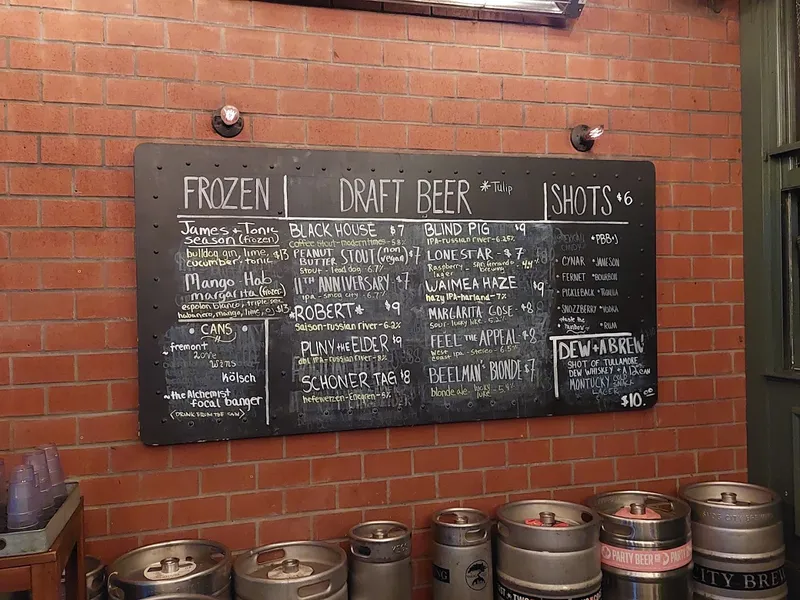 FROZEN
James + Tonic
season (frozen)
bulldog gin, lime, $13
cucumber, tonic
Mango Hab
margarita (frozen)
espolon blanco, triple sec,
habanero, mango, lime, $13
CANS
~ fremont
Kölsch
~ the Alchemist
focal banger
(DRINK FROM THE CAN)
DRAFT BEER *Tulip
BLACK HOUSE $7
coffee stout - modern times - 5.8%
PEANUT BUTTER STOUT (non vegan) $7
stout - lead dog 6.7%
11TH ANNIVERSARY $7
ipa - smog city - 6.7%
*ROBERT* $9
saison - russian river - 6.2%
PLINY THE ELDER $9
dbl IPA - russian river - 8%
SCHONER TAG $8
hefeweizen - Enegren - 5%
BLIND PIG $9
IPA - russian river - 6.25%
LONE STAR - $7
Raspberry lager - San Fernando brewing
WAIMEA HAZE $9
hazy IPA - harland - 7%
MARGARITA GOSE $8
sour - lucky luke - 5.2%
FEEL THE APPEAL $8
West coast ipa - stereo - 6.5%
BEELMAN'S BLONDE $7
blonde ale - lucky luke - 5.4%
SHOTS $6
PBB+J
CYNAR + JAMESON
FERNET + BOURBON
PICKLEBACK + TEQUILA
SNOZZBERRY + VODKA
+ RUM
DEW + A BREW
SHOT OF TULLAMORE
DEW WHISKEY + A
MONTUCKY COLD SNACK
LAGER
$10.00
PARTY BEER CO PARTY B
CITY BREW